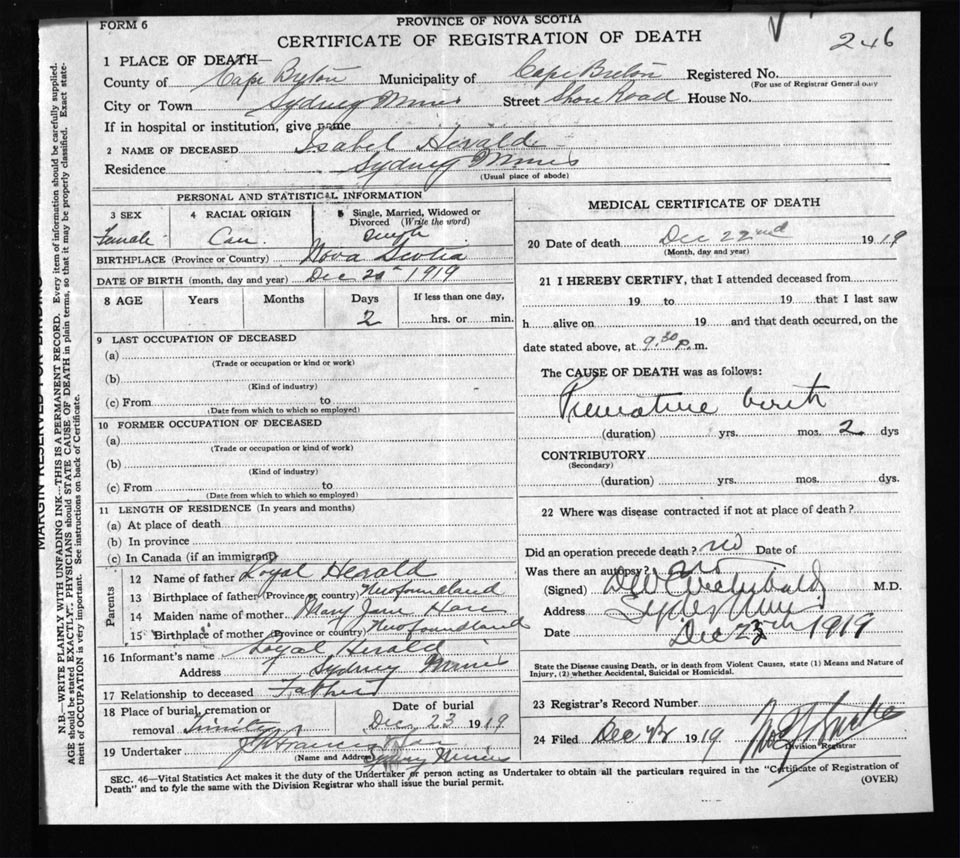 PROVINCE OF NOVA SCOTIA
FORM 6
CERTIFICATE OF REGISTRATION OF DEATH
246
1 PLACE OF DEATH—
County of Cape Bryton Municipality of Cape Breton Registered No.
(For use of Registrar General only
City or Town Sydney Mines Street Shore Road House No.
If in hospital or institution, give name
2 NAME OF DECEASED Isabel
Residence Sydney Mines
(Usual place of abode)
PERSONAL AND STATISTICAL INFORMATION
3 SEX 4 RACIAL ORIGIN 5 Single, Married, Widowed or
Divorced (Write the word)
Female Can.
BIRTHPLACE (Province or Country) Nova Scotia
DATE OF BIRTH (month, day and year) Dec 20 1919
8 AGE Years Months Days If less than one day,
2 hrs. or min.
9 LAST OCCUPATION OF DECEASED
(a)
(Trade or occupation or kind or work)
(b)
(Kind of industry)
(c) From to
(Date from which to which so employed)
10 FORMER OCCUPATION OF DECEASED
(a)
(Trade or occupation or kind of work)
(b)
(Kind of industry)
(c) From to
(Date from which to which so employed)
11 LENGTH OF RESIDENCE (In years and months)
(a) At place of death
(b) In province
(c) In Canada (if an immigrant)
Parents
12 Name of father Loyal Herald
13 Birthplace of father (Province or country) Newfoundland
14 Maiden name of mother Mary Jane
15 Birthplace of mother (Province or country) Newfoundland
16 Informant's name Loyal Herald
Address Sydney Mines
17 Relationship to deceased Father
18 Place of burial, cremation or Date of burial
removal Trinity Dec 23 1919
19 Undertaker
(Name and Address) Sydney Mines
MEDICAL CERTIFICATE OF DEATH
20 Date of death Dec 22nd 1919
(Month, day and year)
21 I HEREBY CERTIFY, that I attended deceased from
19 to 19 that I last saw
h alive on 19 and that death occurred, on the
date stated above, at 9.30 p.m.
The CAUSE OF DEATH was as follows:
Premature birth
(duration) yrs. mos. 2 dys
CONTRIBUTORY
(Secondary)
(duration) yrs. mos. dys.
22 Where was disease contracted if not at place of death?
Did an operation precede death? no Date of
Was there an autopsy? no
(Signed) Archibald M.D.
Address Sydney Mines
Date Dec 1919
State the Disease causing Death, or in death from Violent Causes, state (1) Means and Nature of
Injury, (2) whether Accidental, Suicidal or Homicidal.
23 Registrar's Record Number
24 Filed Dec 1919
Division Registrar
SEC. 46—Vital Statistics Act makes it the duty of the Undertaker or person acting as Undertaker to obtain all the particulars required in the "Certificate of Registration of
Death" and to fyle the same with the Division Registrar who shall issue the burial permit. (OVER)
MARGIN RESERVED FOR BINDING
N.B.—WRITE PLAINLY WITH UNFADING INK—THIS IS A PERMANENT RECORD. Every item of information should be carefully supplied.
AGE should be stated EXACTLY. PHYSICIANS should STATE CAUSE OF DEATH in plain terms, so that it may be properly classified. Exact state-
ment of OCCUPATION is very important. See instructions on back of Certificate.